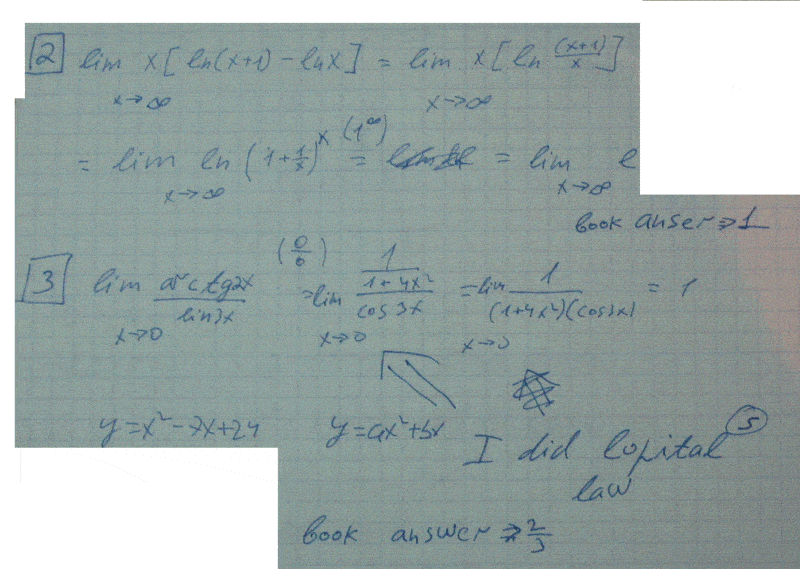 2 lim x→∞ x[ln(x+1) - lnx] = lim x→∞ x[ln (x+1)/x]
= lim x→∞ ln(1+1/x)^x (1^∞) = = lim x→∞ e
book anser ⇒ 1
3 lim x→0 arctg2x/sin3x (0/0) = lim x→0 (1/(1+4x²))/cos3x = lim x→0 1/((1+4x²)(cos3x)) = 1
y=x²-7x+24 y=ax²+bx
I did lopital s
law
book answer ⇒ 2/3